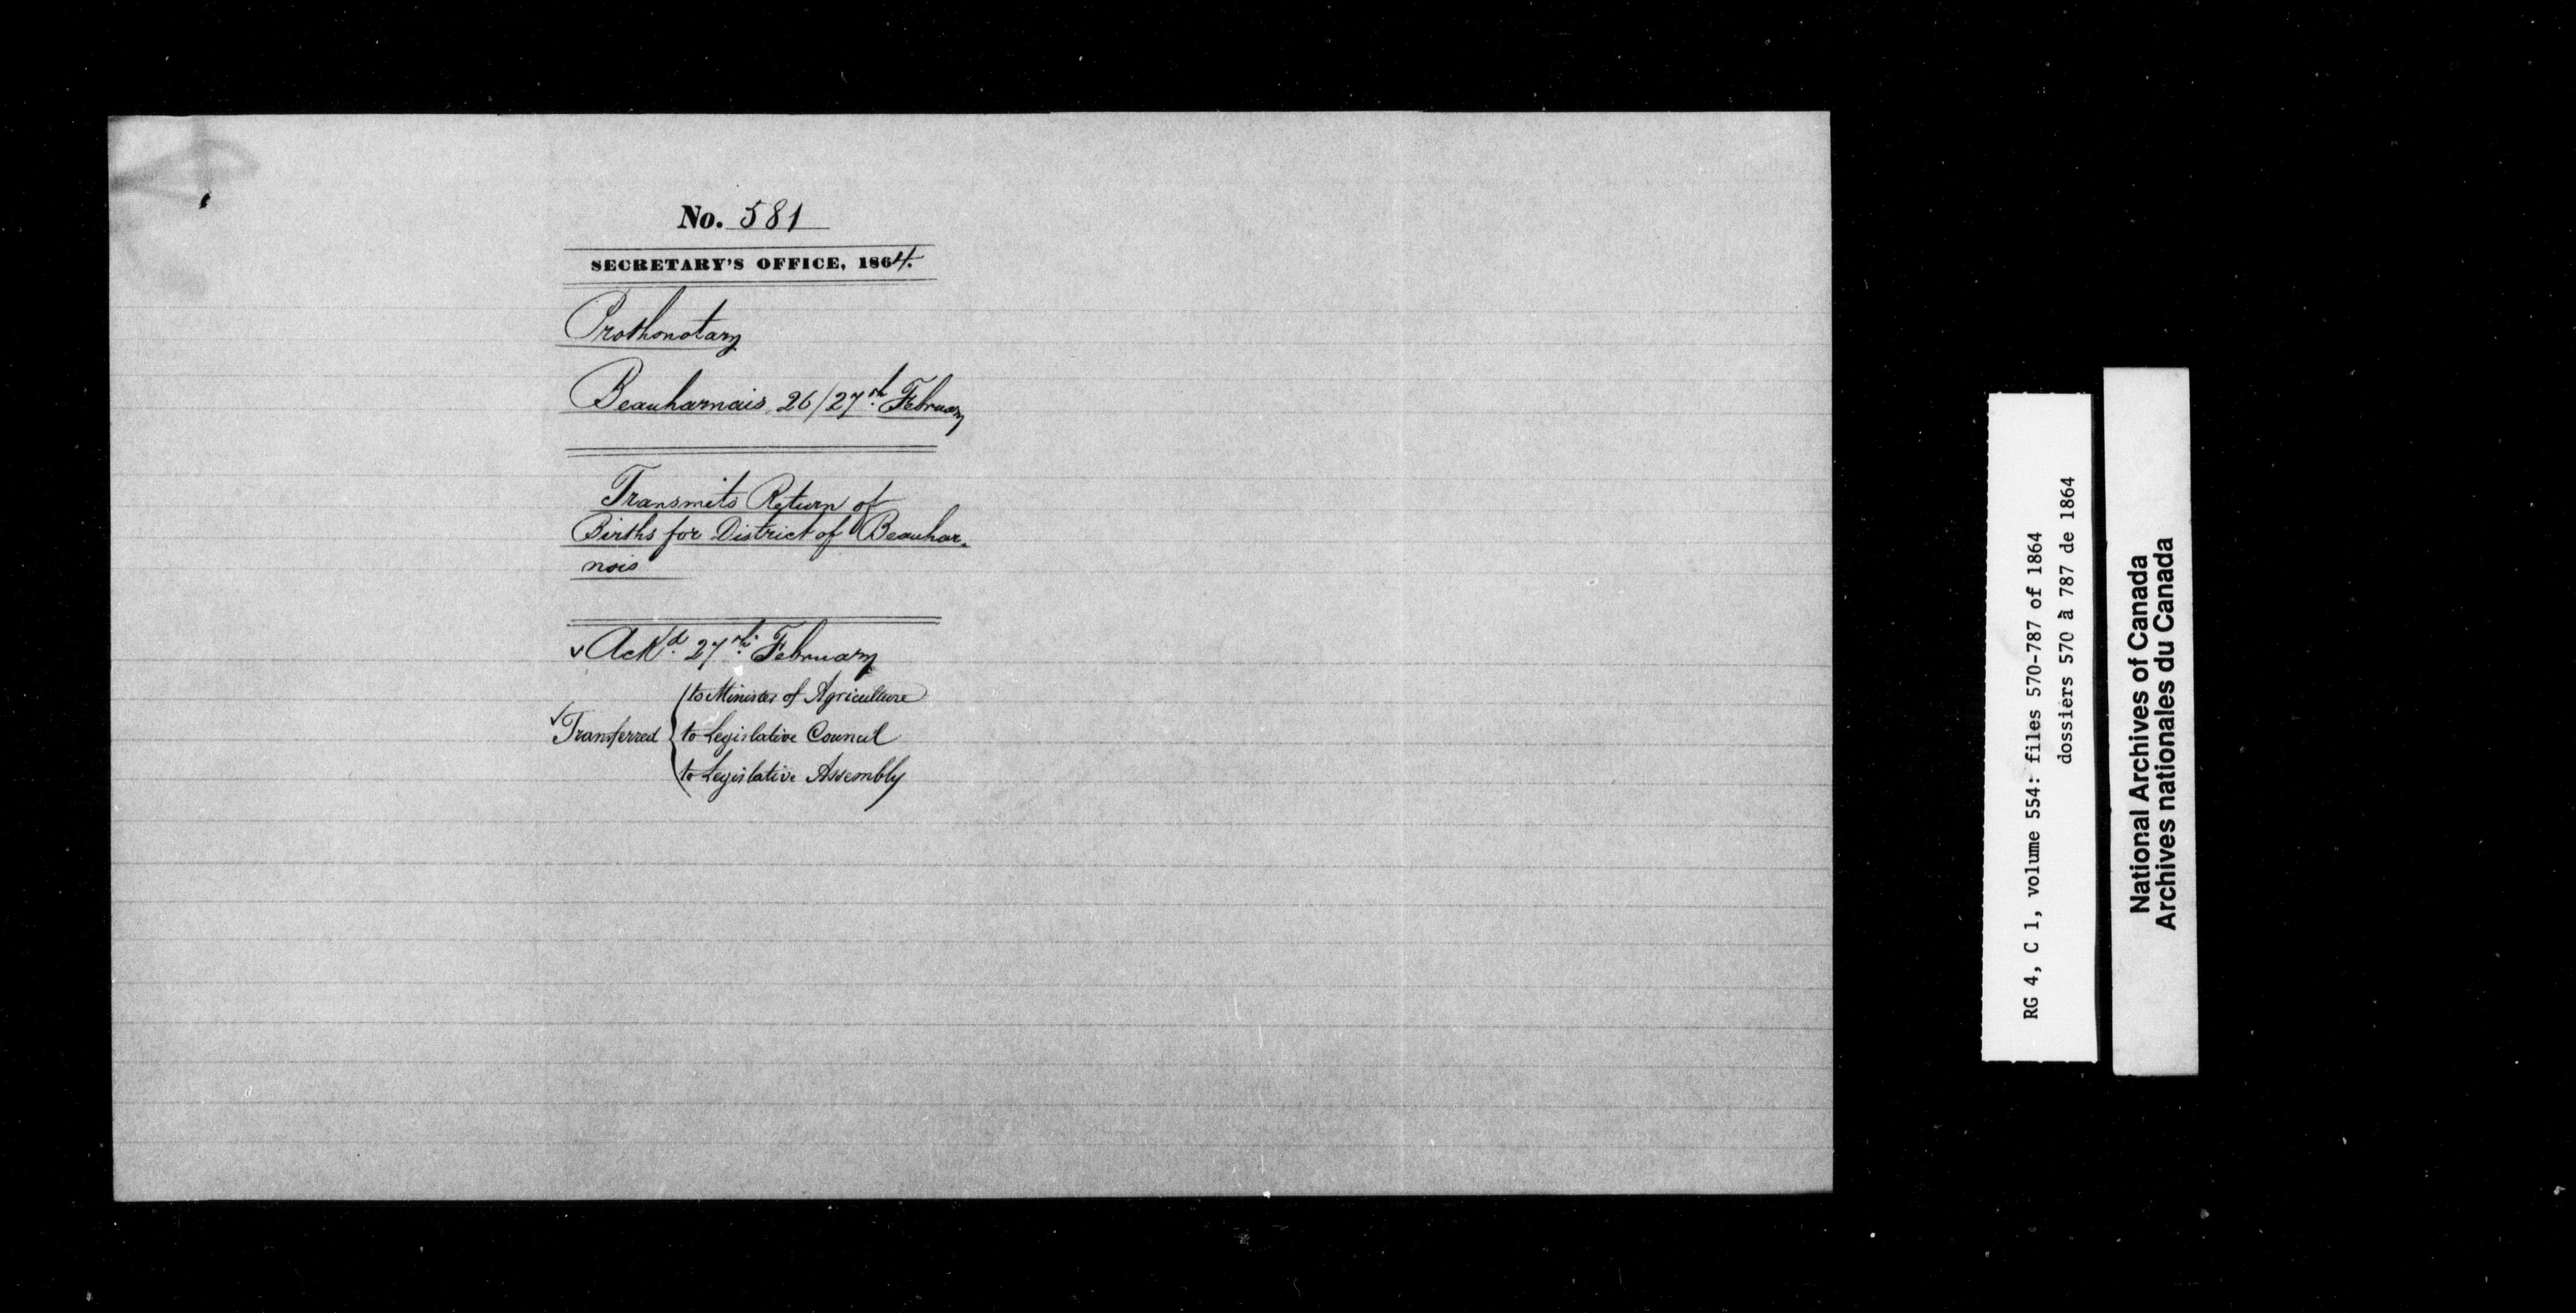 No. 581
SECRETARY'S OFFICE, 1864.
Prothonotary
Beauharnais, 26/27th February
Transmits Return of
Births for District of Beauhar-
nois
✓ Ack'd. 27th February
✓ Transferred { to Minister of Agriculture
to Legislative Council
to Legislative Assembly
RG 4, C 1, volume 554: files 570-787 of 1864
dossiers 570 à 787 de 1864
National Archives of Canada
Archives nationales du Canada